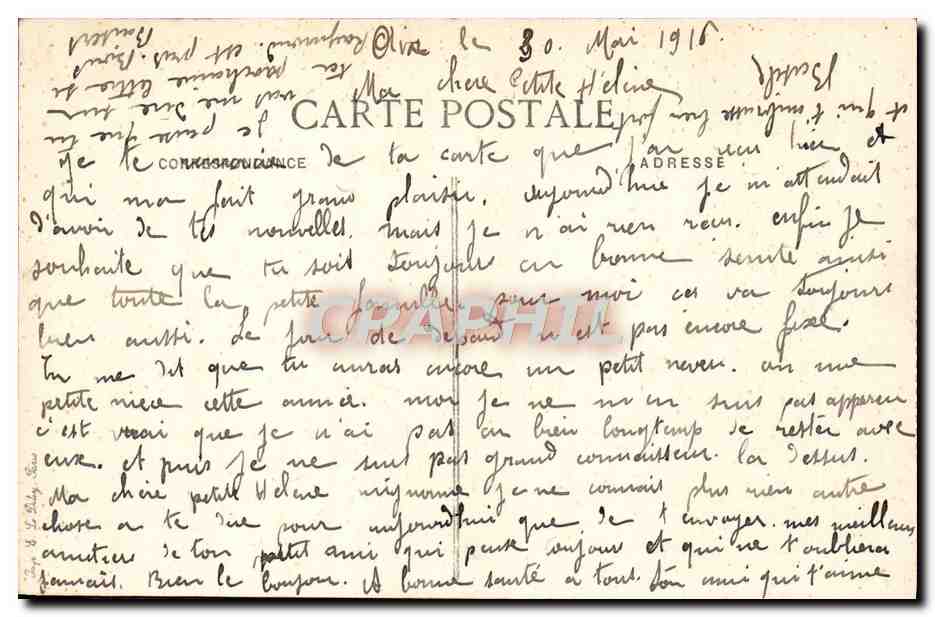 le 30. Mai 1916.
Ma chère Petite Hélène
CARTE POSTALE
CORRESPONDANCE
ADRESSE
Je te remercie de ta carte que j'ai reçu hier et
qui ma fait grand plaisir. aujourd'hui je m'attendait
d'avoir de tes nouvelles. mais je n'ai rien reçu. enfin je
souhaite que tu soit toujours en bonne senté ainsi
que toute la petite famille. pour moi ces va toujours
bien aussi. Le jour de depart n'est pas encore fixé.
Tu me dit que tu auras encore un petit neveu. ou une
petite niece cette année. moi je ne m'en suis pas apperçu
c'est vrai que je n'ai pas eu bien longtemp de rester avec
eux. et puis je ne suis pas grand connaisseur. la dessus.
Ma chère petite Hélène mignonne je ne connait plus rien autre
chose a te dire pour aujourd'hui que de t'envoyer. mes meilleurs
amitier de ton petit ami qui pense toujour et qui ne t'oubliera
jamait. Bien le bonjour. et bonne santé a tous. Ton ami qui t'aime
et qui t'embrasse bien fort
Je pense que tu
vas me dire sur
ta prochaine lettre si
Raymond. est pris. Bons
Baisers
CPAPHIL